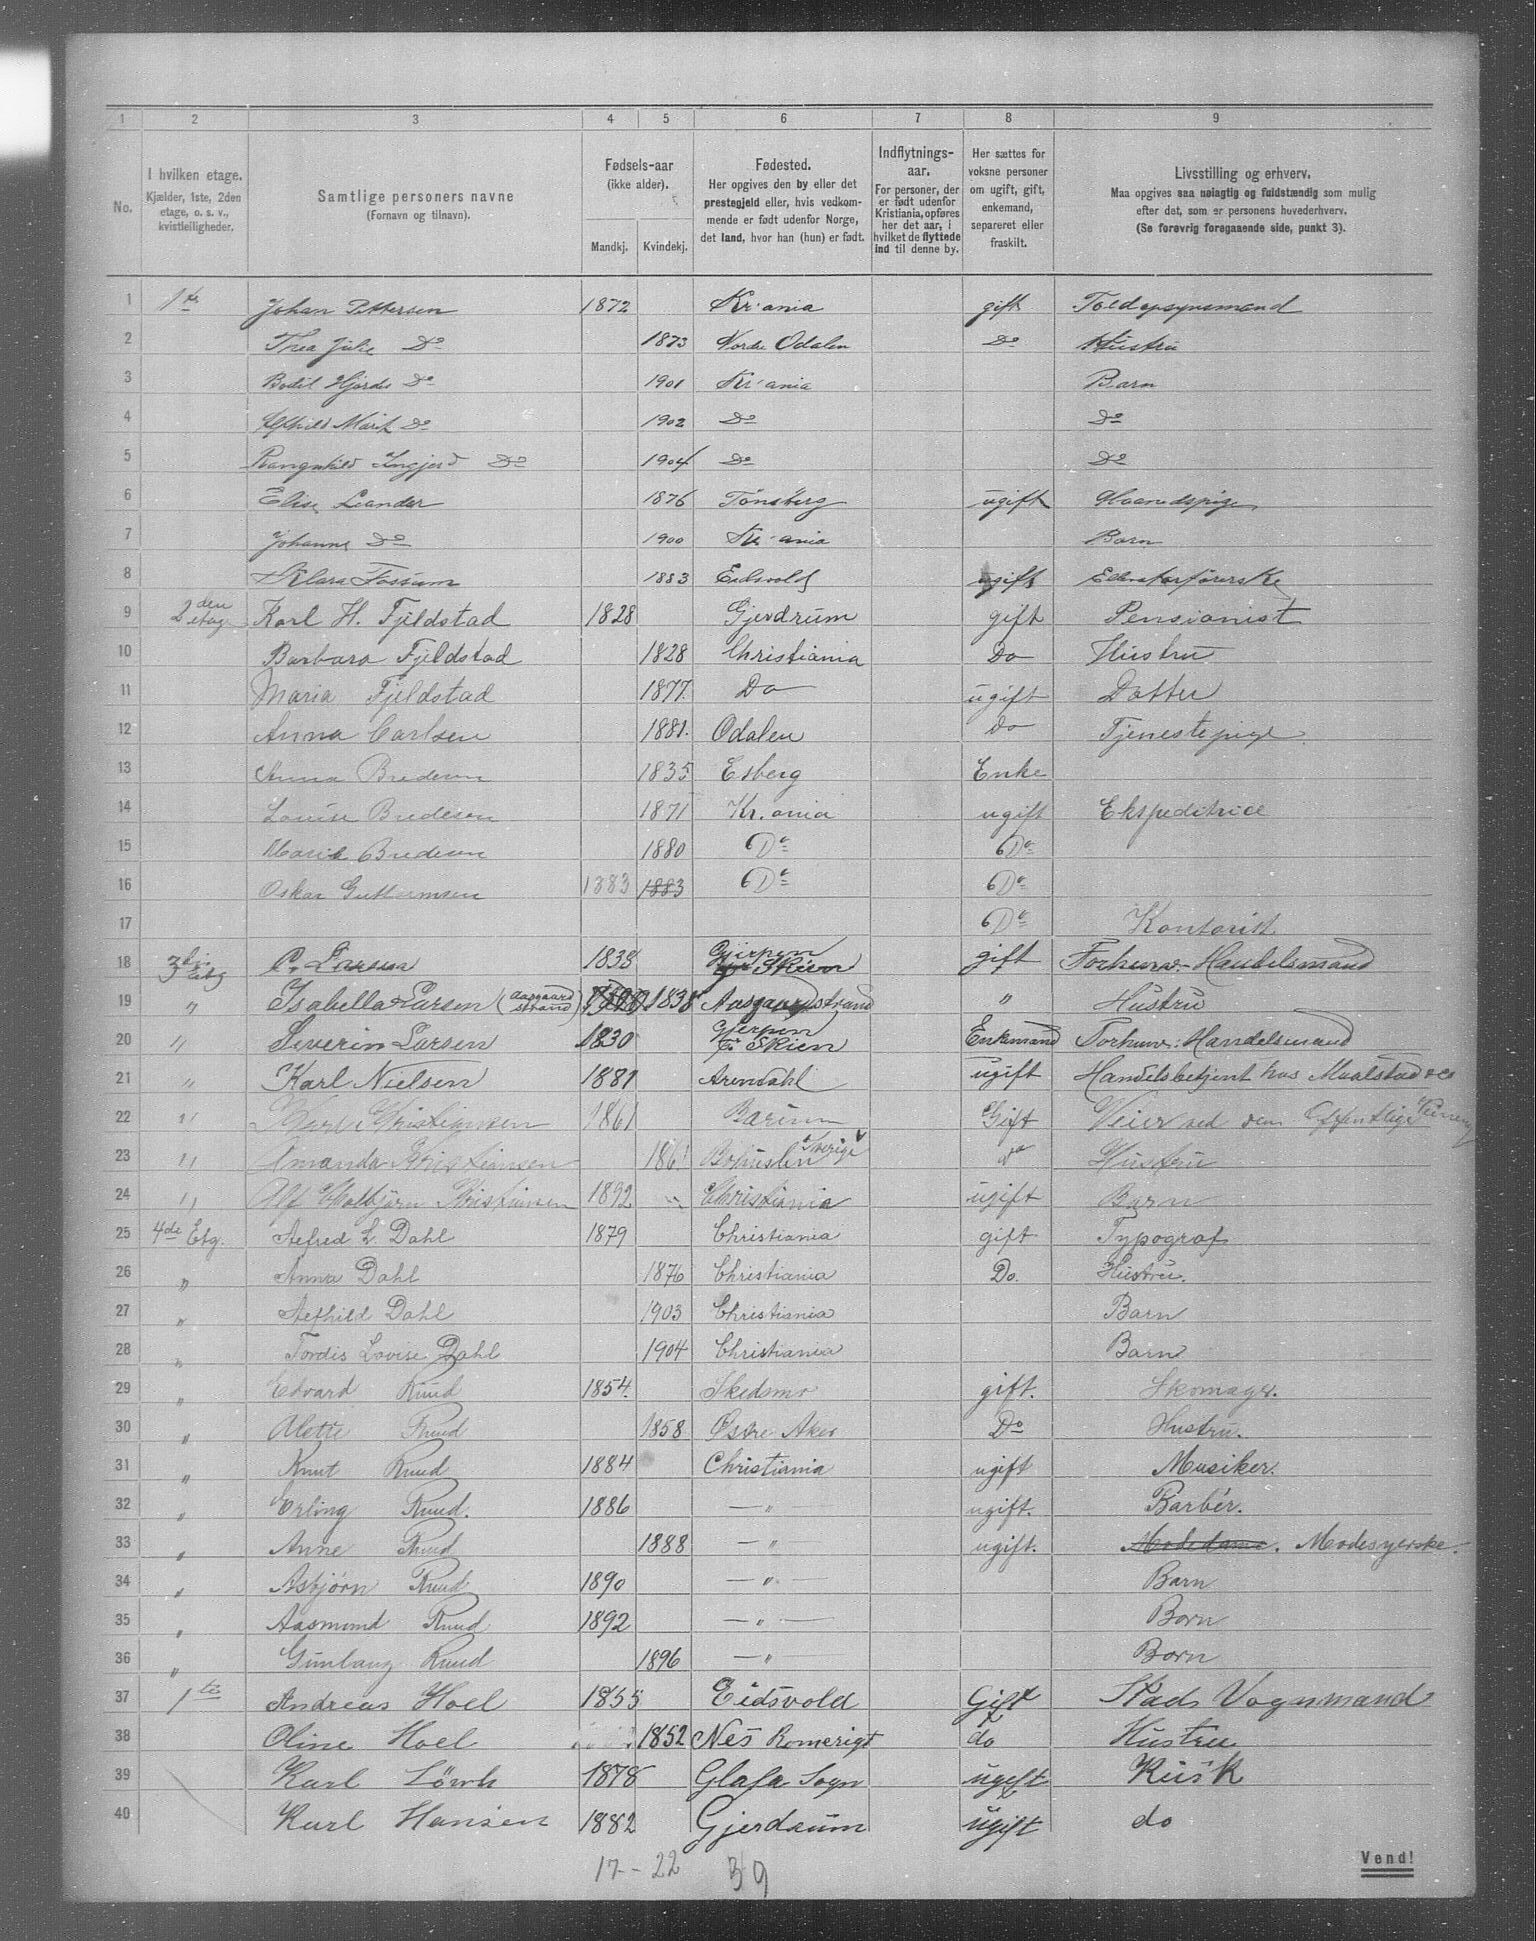 1 2 3 4 5 6 7 8 9
No.
I hvilken etage.
Kjælder, 1ste, 2den
etage, o. s. v.,
kvistleiligheder.
Samtlige personers navne
(Fornavn og tilnavn).
Fødsels-aar
(ikke alder).
Mandkj. Kvindekj.
Fødested.
Her opgives den by eller det
prestegjeld eller, hvis vedkom-
mende er født udenfor Norge,
det land, hvor han (hun) er født.
Indflytnings-
aar.
For personer, der
er født udenfor
Kristiania, opføres
her det aar, i
hvilket de flyttede
ind til denne by.
Her sættes for
voksne personer
om ugift, gift,
enkemand,
separeret eller
fraskilt.
Livsstilling og erhverv.
Maa opgives saa nøiagtig og fuldstændig som mulig
efter det, som er personens hovederhverv.
(Se forøvrig foregaaende side, punkt 3).
1 1te Johan Pettersen 1872 Kr.ania gift Toldopsynsmand
2 Thea Julie Do 1873 Nordre Odalen Do Hustru
3 Bodil Hjørdis Do 1901 Kr.ania Barn
4 Alfhild Marit Do 1902 Do Do
5 Rangnhild Ingjerd Do 1904 Do Do
6 Elise Leander 1876 Tønsberg ugift
7 Johanne Do 1900 Kr.ania Barn
8 Klara Fossum 1883 Eidsvold ugift
9 2den etag. Karl H. Fjeldstad 1828 Gjerdrum gift Pensionist
10 Barbara Fjeldstad 1828 Christiania Do Hustru
11 Maria Fjeldstad 1877. Do ugift Datter
12 Anna Carlsen 1881. Odalen Do Tjenestepige
13 Anna Bredesen 1835 Esberg Enke
14 Louise Bredesen 1871 Kr.ania ugift Ekspeditrice
15 Marie Bredesen 1880 Do Do
16 Oskar Guttormsen 1883 1883 Do Do
17 Do Kontorist
18 3die Etg P. Larsen 1838 Gjerpen pr Skien gift Forhenv. Handelsmand
19 " Isabella Larsen (Aasgaardstrand) 1838 Aasgaardstrand " Hustru
20 " Severin Larsen 1830 Gjerpen pr Skien Enkemand Forhenv: Handelsmand
21 " Karl Nielsen 1881 Arendahl ugift Handelsbetjent hos Maalstad & co
22 " Karl Kristiansen 1861 Bærum Gift Veier ved den Offentlige
23 " Amanda Kristiansen 1861 Bohuslen Sverige do Hustru
24 " Alf Kristiansen 1892 " Christiania ugift Barn
25 4de Etg. Alfred L. Dahl 1879 Christiania gift Typograf
26 " Anna Dahl 1876 Christiania Do. Hustru.
27 " Alfhild Dahl 1903 Christiania Barn
28 " Tordis Lovise Dahl 1904 Christiania Barn
29 " Edvard Ruud 1854. Skedsmo gift. Skomager.
30 " Alette Ruud 1858 Østre Aker Do Hustru.
31 " Knut Ruud 1884 Christiania ugift Musiker.
32 " Erling Ruud. 1886 — " — ugift. Barbér.
33 " Anne Ruud 1888 — " — ugift. Modedame. Modesyerske.
34 " Asbjørn Ruud 1890 — " — Barn
35 " Aasmund Ruud 1892 — " — Barn
36 " Gunlaug Ruud 1896 — " Barn
37 1te Andreas Hoel 1855 Eidsvold Gift Stads Vognmand
38 Oline Hoel 1852 Nes Romerigt do Hustru
39 Karl 1878 ugift Kusk
40 Karl Hansen 1882 Gjerdrum ugift do
17 - 22 39
Vend!